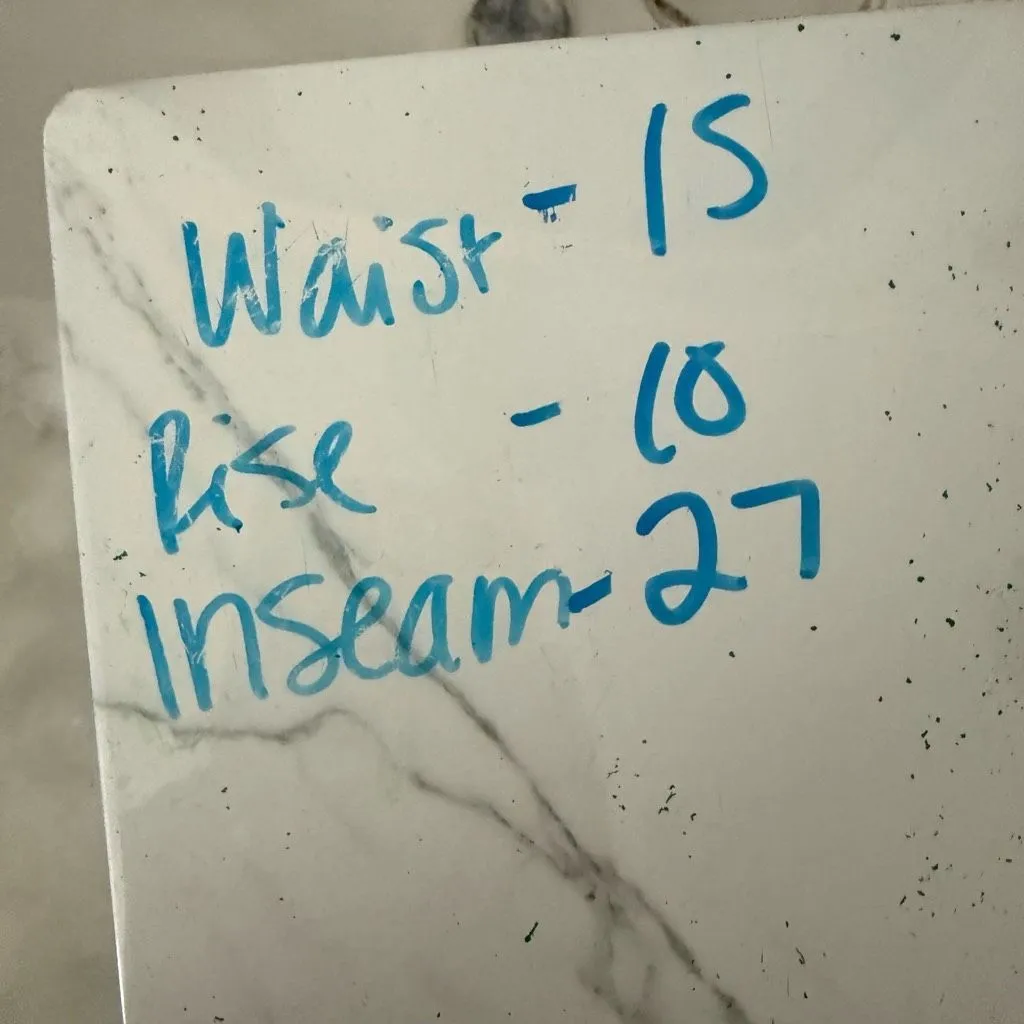 Waist - 15
Rise - 10
Inseam - 27